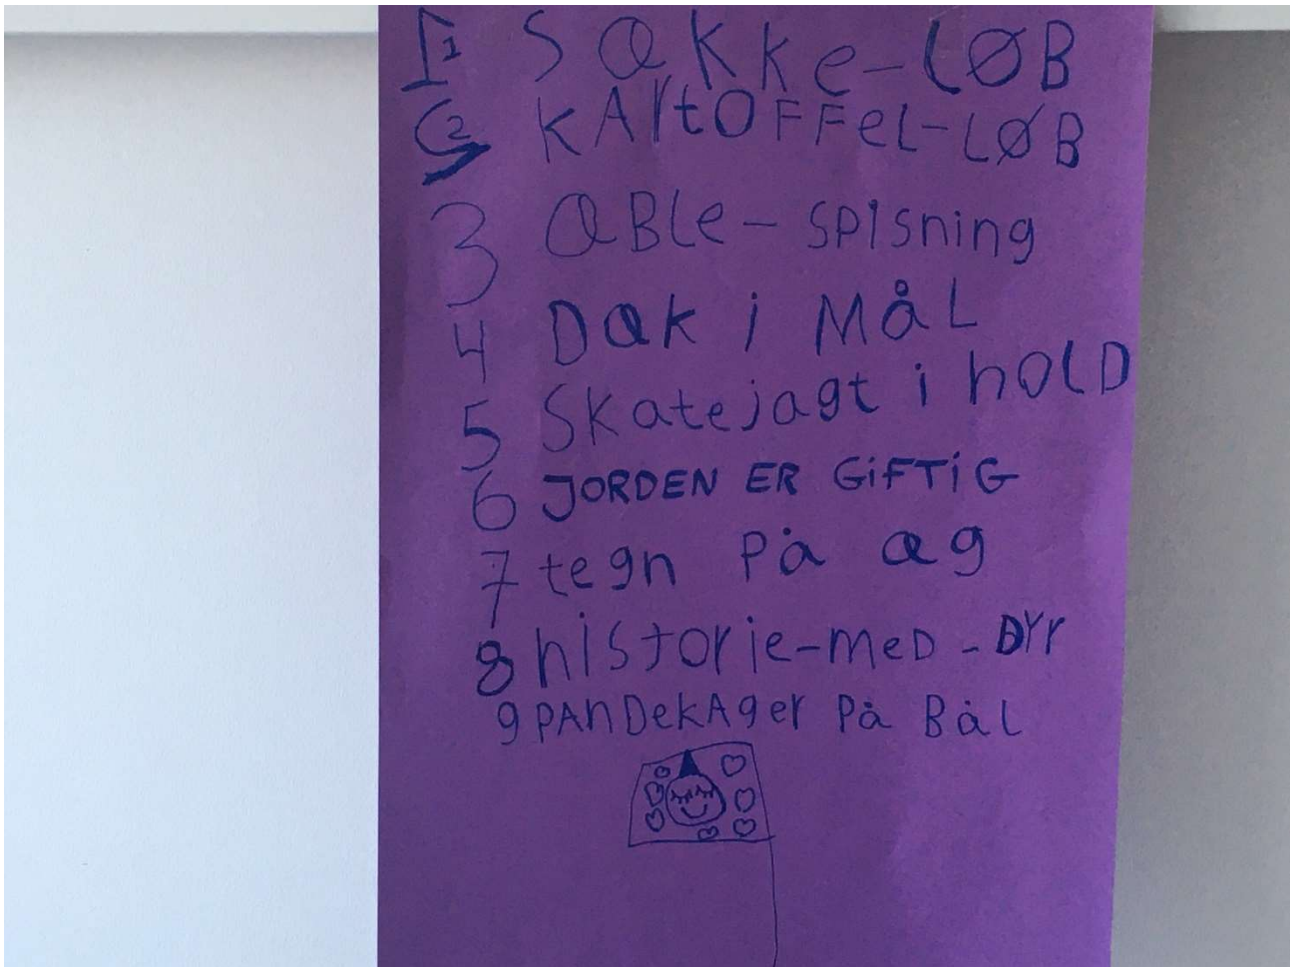 1 SÆKKe-LØB
2 KARtOFFeL-LØB
3 ÆBLe-SPISning
4 DÆK i MåL
5 SKatejagt i hOLD
6 JORDEN ER GiFTiG
7 tegn På æg
8 hiStorie-meD-DYr
9 PAnDekAger På Bål